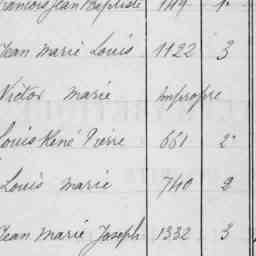 François Jean Baptiste 149 1
Jean Marie Louis 1122 3
Victor Marie impropre
Louis René Pierre 661 2
Louis Marie 740 2
Jean Marie Joseph 1332 3